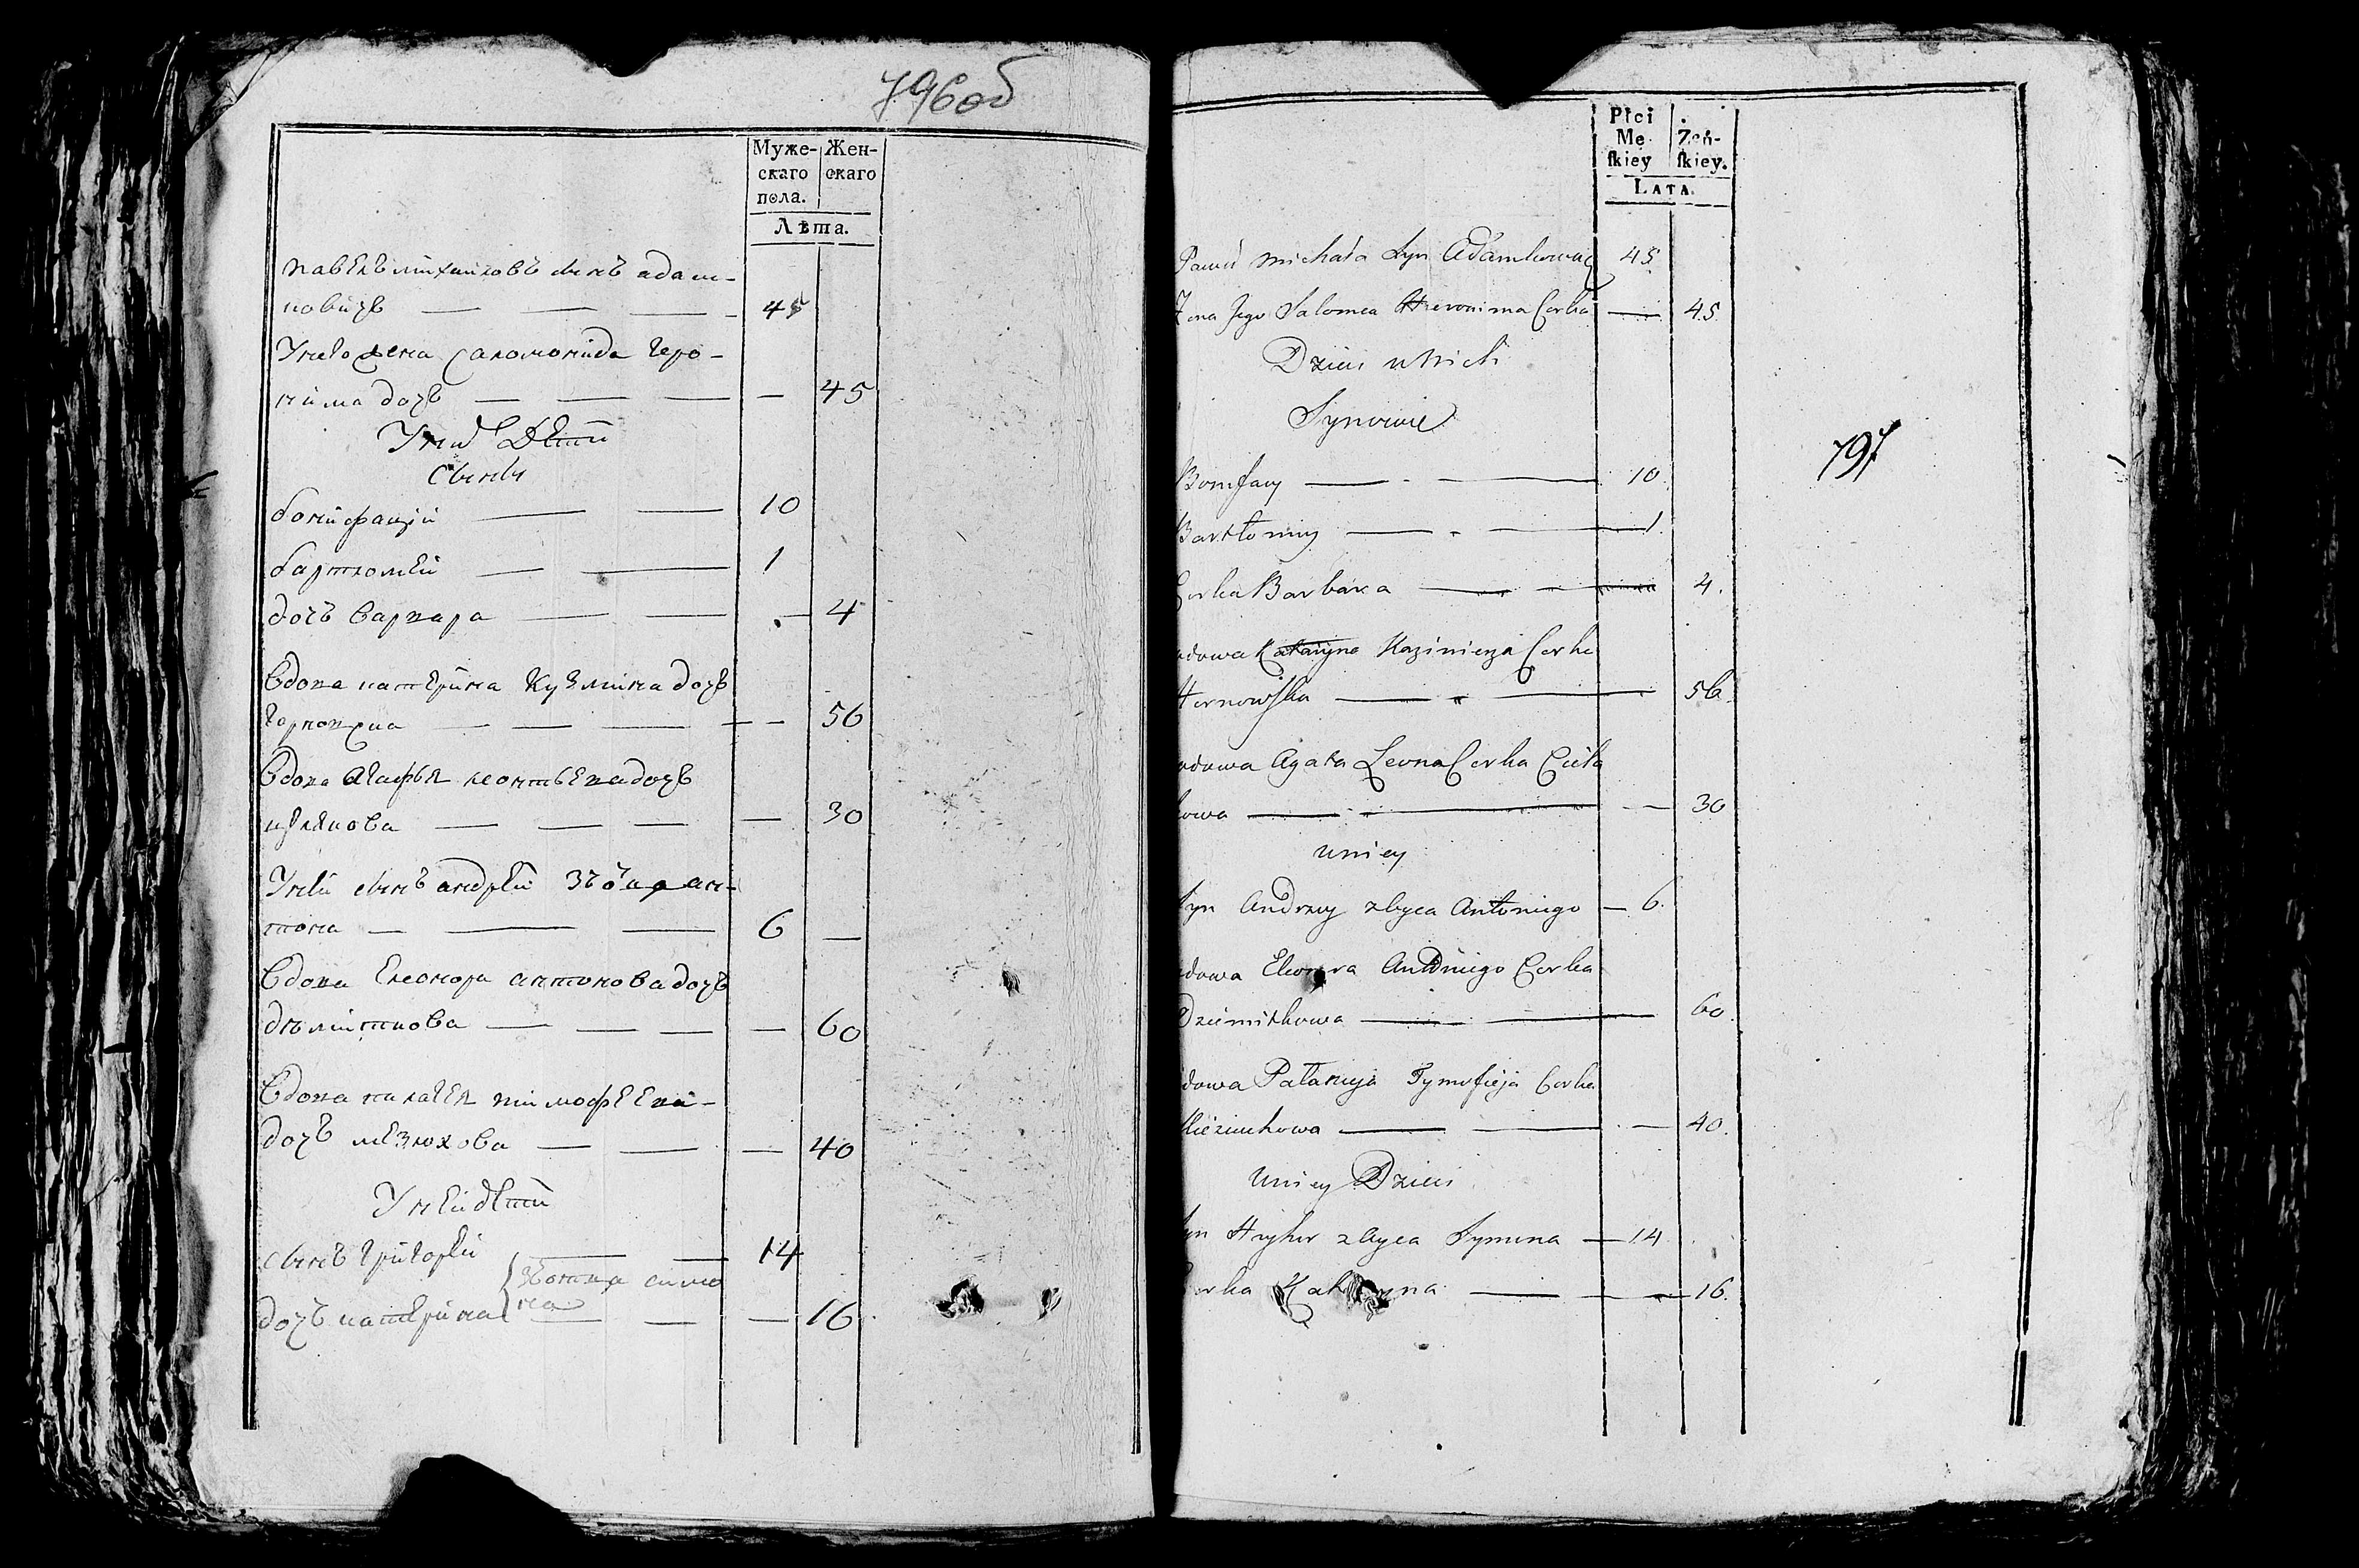 796об
Муже-
скаго
пола.
Жен-
скаго
Лѣта.
павелъ михайловъ сынъ адам-
ковичь 45
У него жена Саломонида Геро-
нима дочь 45
У них Дети
Сыны
бонифацій 10
бартломей 1
дочь варвара 4
Вдова катерина Кузмина дочь
56
Вдова Агафья леонтьева дочь
30
У ней сынъ андрей ан-
тона 6
Вдова Елеонора антонова дочь
дземиткова 60
Вдова палагея тимофеева
дочь мезюхова 40
У ней дети
сынъ григорей 14
симо
на
дочь катерина 16
Płci
Mę
ſkiey
Żeń-
ſkiey.
LATA.
Paweł Michała Syn Adamkowicz 45
Zona Jego Salomea Hieronima Corka 45
Dzieci u Nich
Synowie
797
Bonifacy 10
Bartłomiy 1
Corka Barbara 4.
Katarzyna Kazimierza Corka
Hornowſka 56.
Agata Leona Corka
kowa 30
u niey
Syn Andrzey z Oyca Antoniego 6.
Eleonora Antoniego Corka
Dziemitkowa 60.
Pałanieja Tymofieja Corka
Mieziuchowa 40.
U niey Dzieci
Syn Hryhor z Oyca Symona 14
Corka Katarzyna 16.